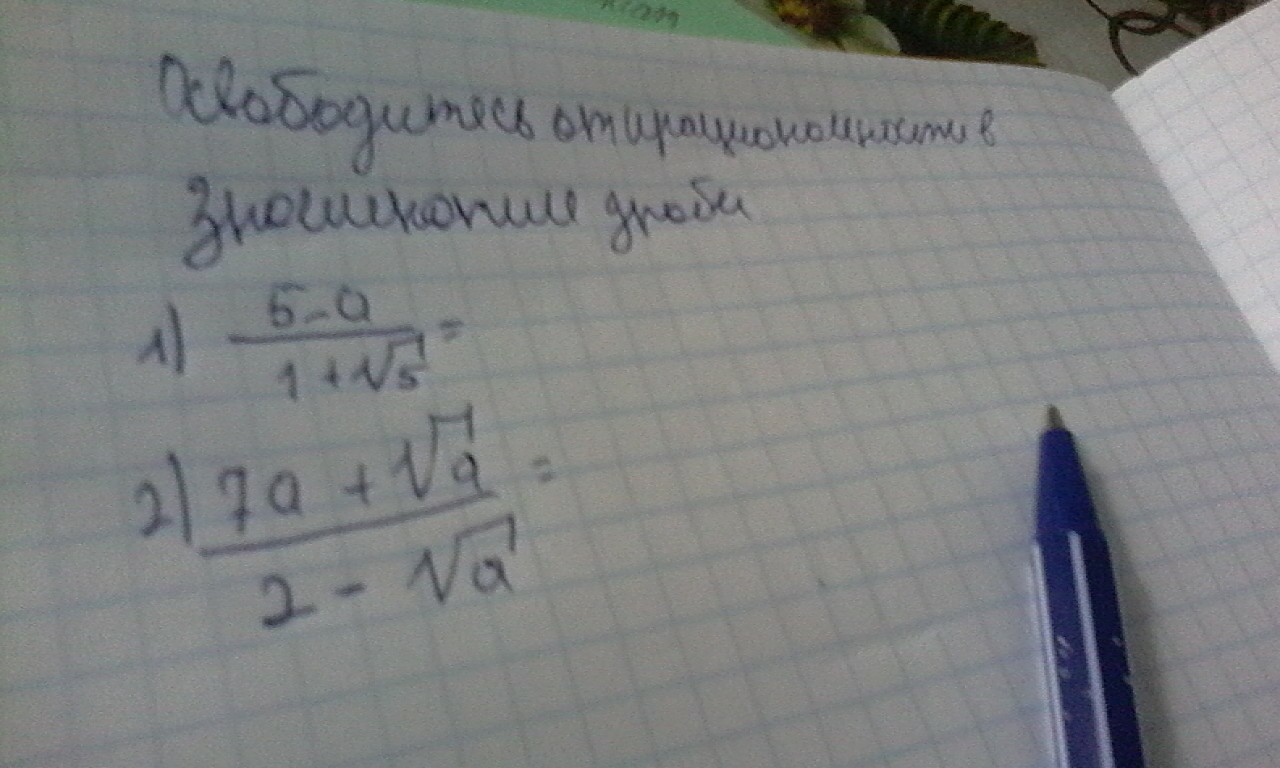 Освободитесь от ирациональности в
знаменателе дроби
1) 5-a / 1+√5 =
2) 7a + √a / 2 - √a =